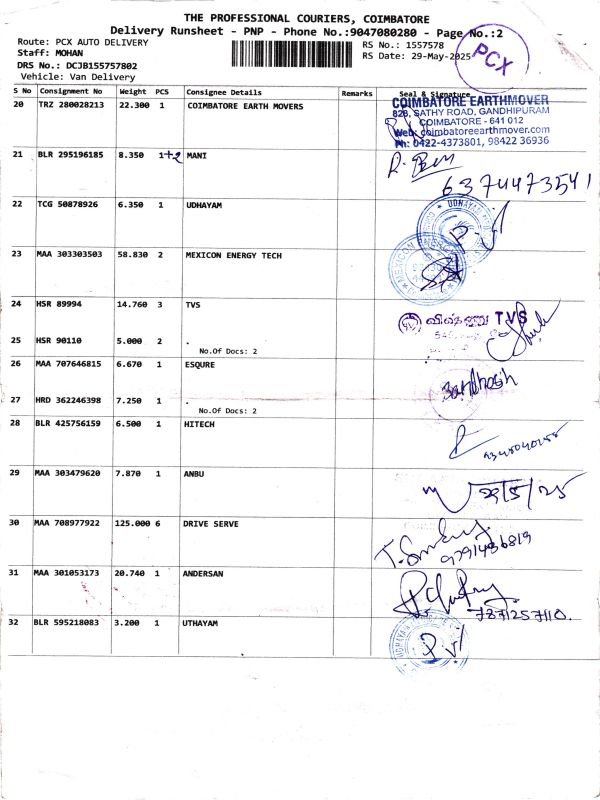 THE PROFESSIONAL COURIERS, COIMBATORE
Delivery Runsheet - PNP - Phone No.:9047080280 - Page No.:2
Route: PCX AUTO DELIVERY
Staff: MOHAN
DRS No.: DCJB155757802
Vehicle: Van Delivery
RS No.: 1557578
RS Date: 29-May-2025
PCX
S No Consignment No Weight PCS Consignee Details Remarks Seal & Signature
20 TRZ 280028213 22.300 1 COIMBATORE EARTH MOVERS
COIMBATORE EARTHMOVER
826, SATHY ROAD, GANDHIPURAM
COIMBATORE - 641 012
Web: coimbatoreearthmover.com
Ph: 0422-4373801, 98422 36936
21 BLR 295196185 8.350 1+2 MANI
6374473541
22 TCG 50878926 6.350 1 UDHAYAM
23 MAA 303303503 58.830 2 MEXICON ENERGY TECH
24 HSR 89994 14.760 3 TVS
விஷ்ணு TVS
25 HSR 90110 5.000 2 .
No.Of Docs: 2
26 MAA 707646815 6.670 1 ESQURE
27 HRD 362246398 7.250 1 .
No.Of Docs: 2
28 BLR 425756159 6.500 1 HITECH
29 MAA 303479620 7.870 1 ANBU
29/5/25
30 MAA 708977922 125.000 6 DRIVE SERVE
9791436819
31 MAA 301053173 20.740 1 ANDERSAN
7871257110.
32 BLR 595218083 3.200 1 UTHAYAM